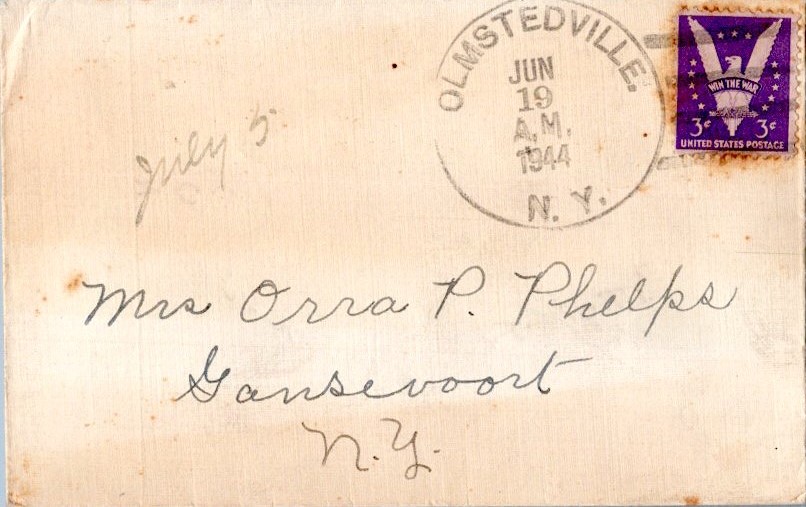 OLMSTEDVILLE.
JUN
19
A.M.
1944
N. Y.
WIN THE WAR
3¢ 3¢
UNITED STATES POSTAGE
July 5
Mrs Orra P. Phelps
Gansevoort
N.Y.